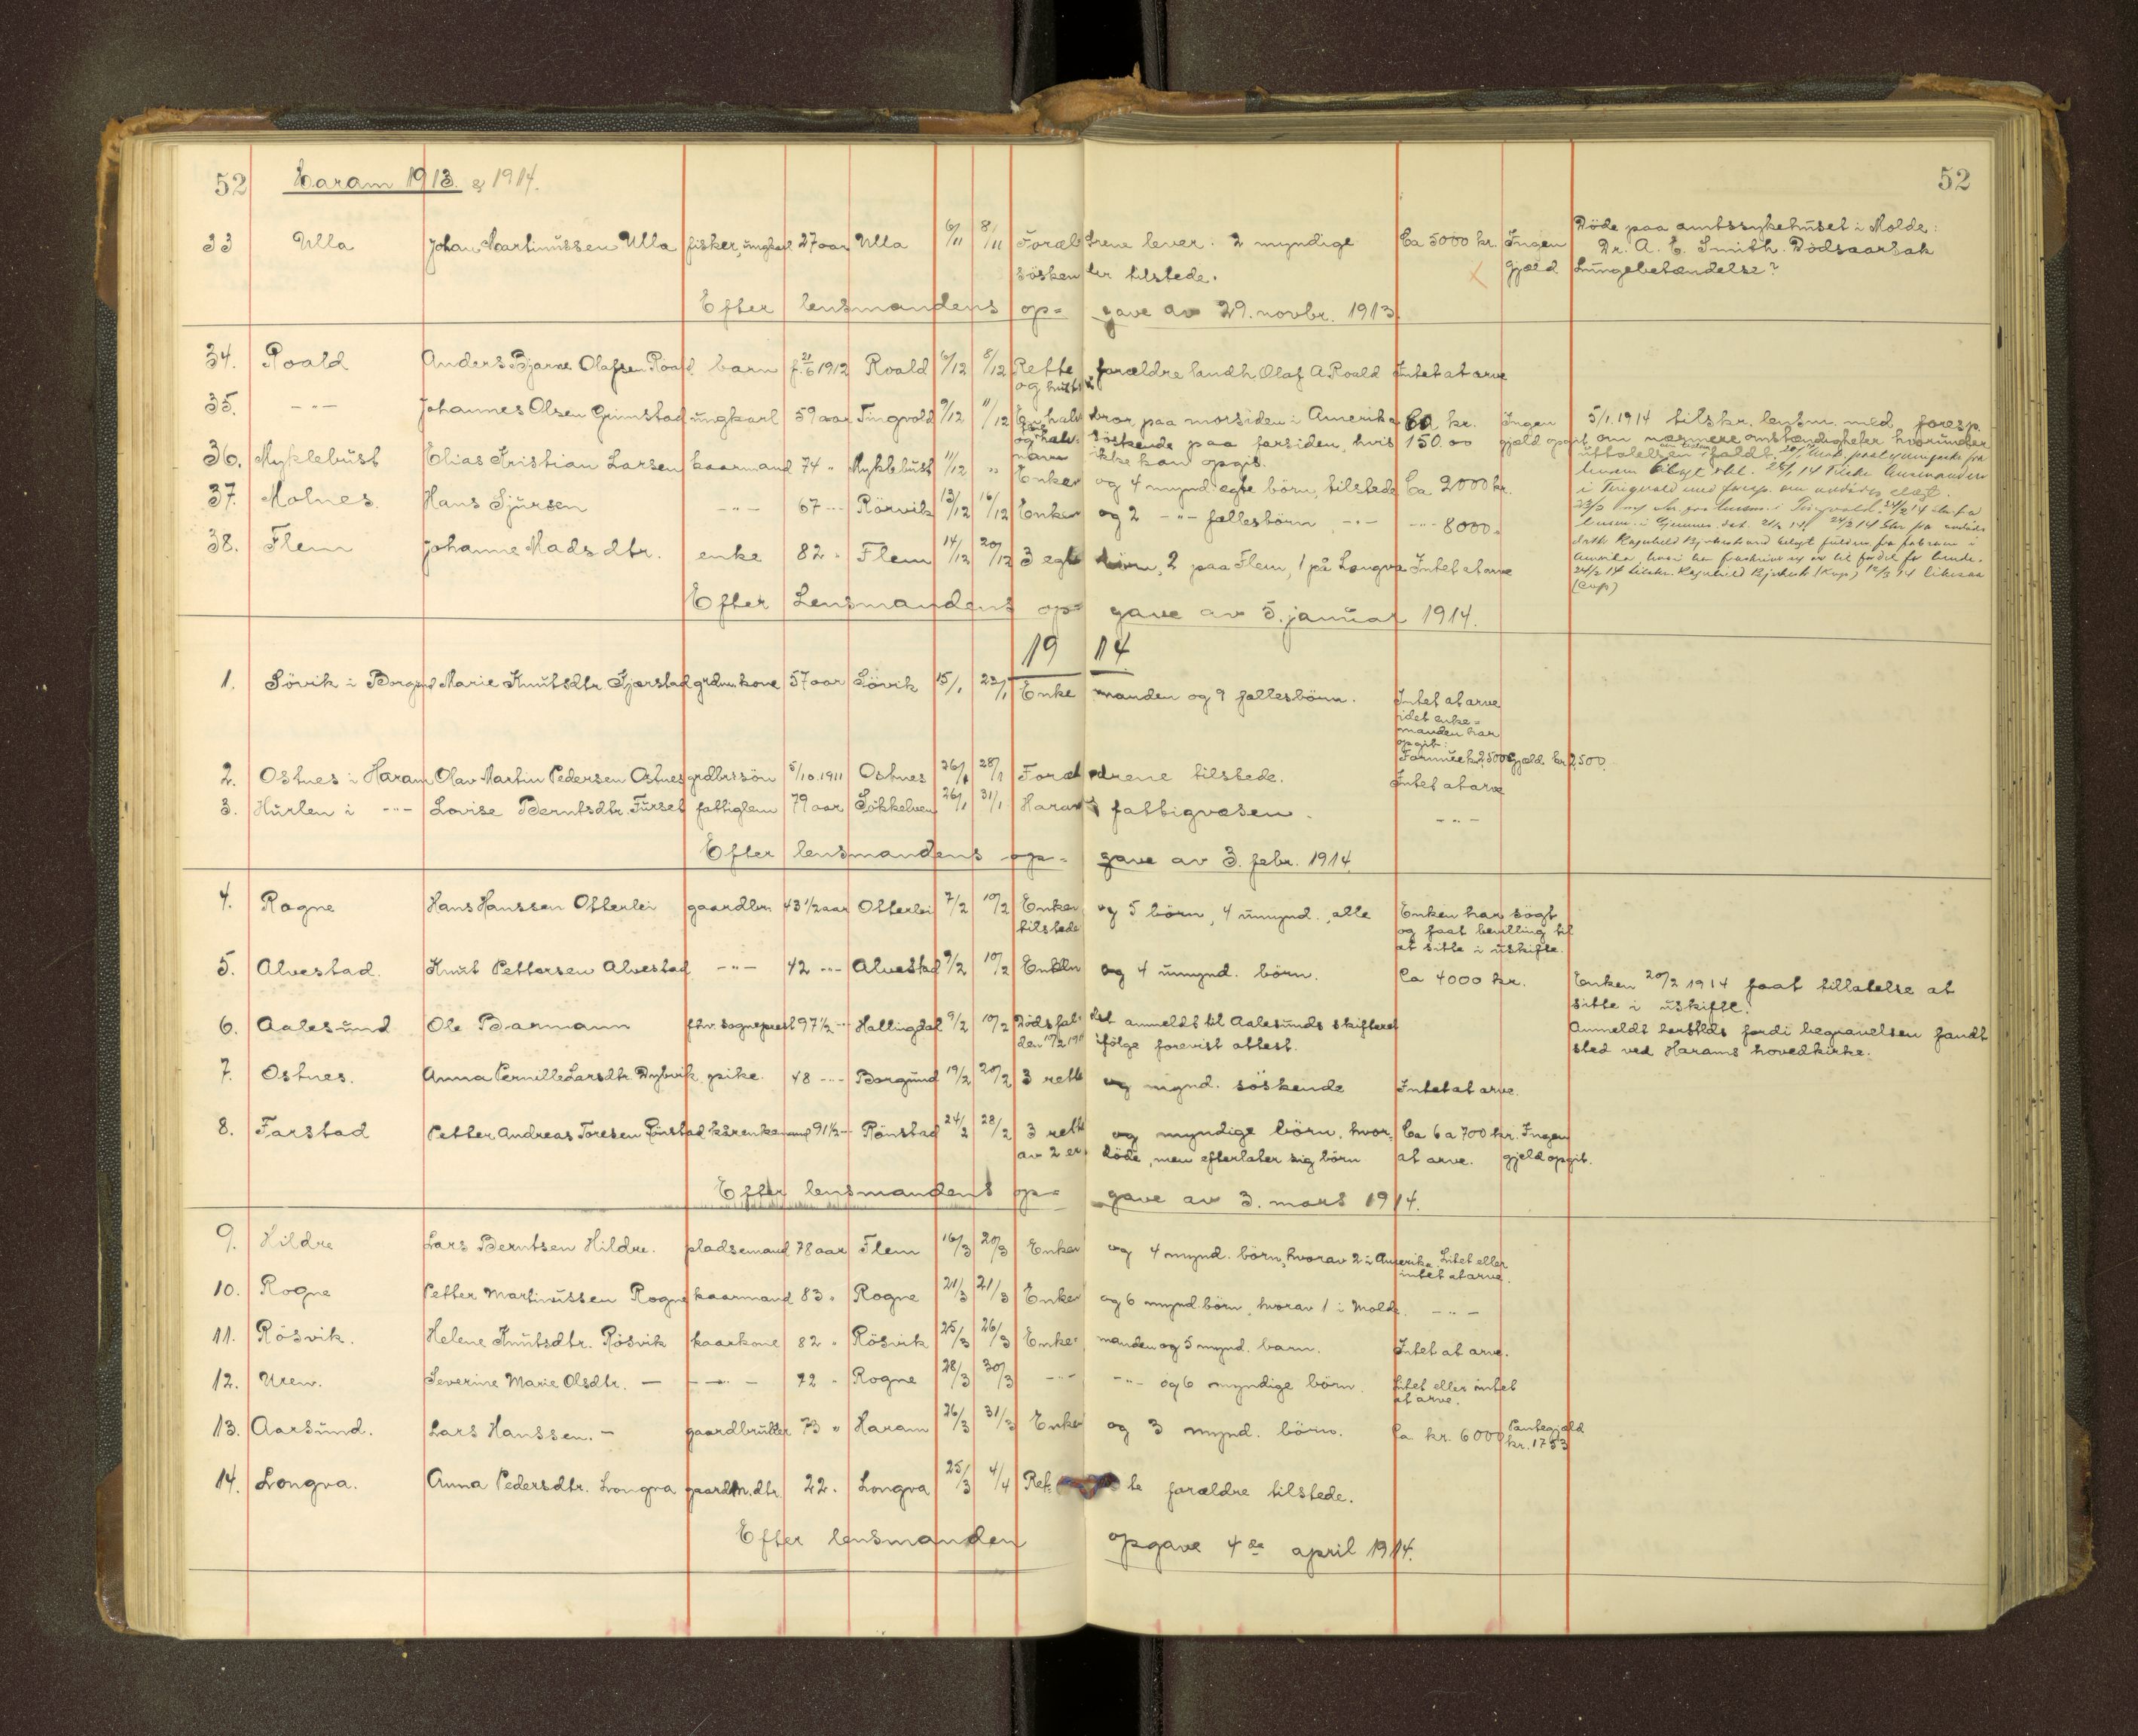 52 Haram 1913 & 1914. 52
33 Ulla Johan Martinussen Ulla fisker, ungkarl 27 aar Ulla 6/11 8/11 Forældrene lever. 2 myndige Ca 5000 kr. Ingen Döde paa amtssykehuset i Molde:
söskender tilstede. gjæld Dr. A. C. Smith. Dödsaarsak
Lungebetændelse?
Efter lensmandens op= gave av 29. novbr. 1913.
34. Roald Anders Bjarne Olafsen Roald barn f. 21/6 1912 Roald 6/12 8/12 Rette forældre landh. Olaf A. Roald Intet at arve
og hustru
35. -"- Johannes Olsen Grimstad ungkarl 59 aar Tingvold 9/12 11/12 En halvbror paa morsiden i Amerika Ca kr. Ingen 5/1 1914 tilskr. lensm. med foresp.
og halvsöskende paa farsiden, hvis 150.00 gjæld opgit om nærmere omstændigheter hvorunder
navn ikke kan opgis.
36. Myklebust Elias Kristian Larsen kaarmand 74 " Myklebust 11/12 " Enken og 4 mynd. egte börn, tilstede Ca 2000 kr.
37. Molnes. Hans Sjursen -"- 67 -"- Rörvik 13/12 16/12 Enken og 2 -"- fællesbörn -"- -"- 8000.
38. Flem Johanne Madsdtr. enke 82 " Flem 14/12 20/12 3 egte börn, 2 paa Flem, 1 på Longva Intet at arve
24/2 14 tilskr. Ragnhild (Kop) 12/3 14 likesaa
(Kop)
Efter Lensmandens op= gave av 5. januar 1914.
19 14
1. Sövik i Borgund Marie Knutsdtr. Gjærstad grdm. kone 57 aar Sövik 15/1 22/1 Enkemanden og 9 fællesbörn. Intet at arve
idet enke=
manden har
opgit:
Formue kr. 2,500 Gjæld kr. 2,500.
2. Ostnes i Haram Olav Martin Pedersen Ostnes grdbr.sön 5/10.1911 Ostnes 26/1 28/1 Forældrene tilstede. Intet at arve
3. Hurlen i -"- Lovise Berntsdtr. Furset fattiglem 79 aar Sökkelven 26/1 31/1 Harams fattigvæsen. -"-
Efter lensmandens op= gave av 3. febr. 1914.
4. Rogne Hans Hanssen Otterlei gaardbr. 43 1/2 aar Otterlei 7/2 10/2 Enken og 5 börn, 4 umynd., alle Enken har sögt
tilstede og faat bevilling til
at sitte i uskifte.
5. Alvestad. Knut Pettersen Alvestad -"- 42 -"- Alvestad 9/2 10/2 Enken og 4 umynd. börn. Ca 4000 kr. Enken 20/2 1914 faat tillatelse at
sitte i uskifte.
6. Aalesund Ole Barmann fhv. sogneprest 97 1/2 -"- Hallingdal 9/2 10/2 Dödsfaldet anmeldt til Aalesunds skifteret Anmeldt hersteds fordi begravelsen fandt
den 10/2 1914 ifölge forevist attest. sted ved Harams hovedkirke.
7. Ostnes. Anna Pernille Larsdtr. Dybvik pike. 48 -"- Borgund 19/2 20/2 3 rette og mynd. söskende Intet at arve.
8. Farstad Petter Andreas Toresen Rönstad kårenkemand 91 1/2 -"- Rönstad 24/2 28/2 3 rette og myndige börn, hvor= Ca 6 a 700 kr. Ingen
av 2 er döde, men efterlater sig börn at arve. gjeld opgit.
Efter lensmandens op= gave av 3. mars 1914.
9. Hildre Lars Berntsen Hildre. pladsemand 78 aar Flem 16/3 20/3 Enken og 4 mynd. börn, hvorav 2 i Amerika Litet eller
intet at arve.
10. Rogne Petter Martinussen Rogne kaarmand 83 " Rogne 21/3 21/3 Enken og 6 mynd. börn, hvorav 1 i Molde. -"-
11. Rösvik. Helene Knutsdtr. Rösvik kaarkone 82 " Rösvik 25/3 26/3 Enke= manden og 5 mynd. barn. Intet at arve.
12. Urem. Severine Marie Olsdtr. — -"- 72 " Rogne 28/3 30/3 -"- -"- og 6 myndige börn. Litet eller intet
at arve.
13. Aarsund. Lars Hanssen. — gaardbruker 73 " Haram 26/3 31/3 Enken og 3 mynd. börn. Ca kr. 6000 Pantegjæld
kr. 1753
14. Longva. Anna Pedersdtr. Longva gaardm. dtr. 22. Longva 25/3 4/4 Ret= te forældre tilstede.
Efter lensmanden opgave 4de april 1914.